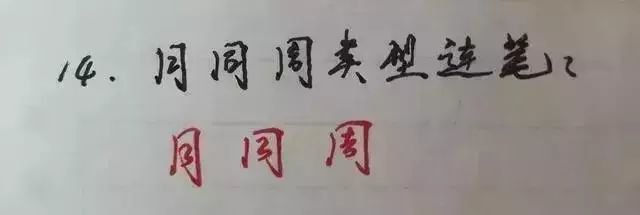 14. 月同周类型连笔:
月同周